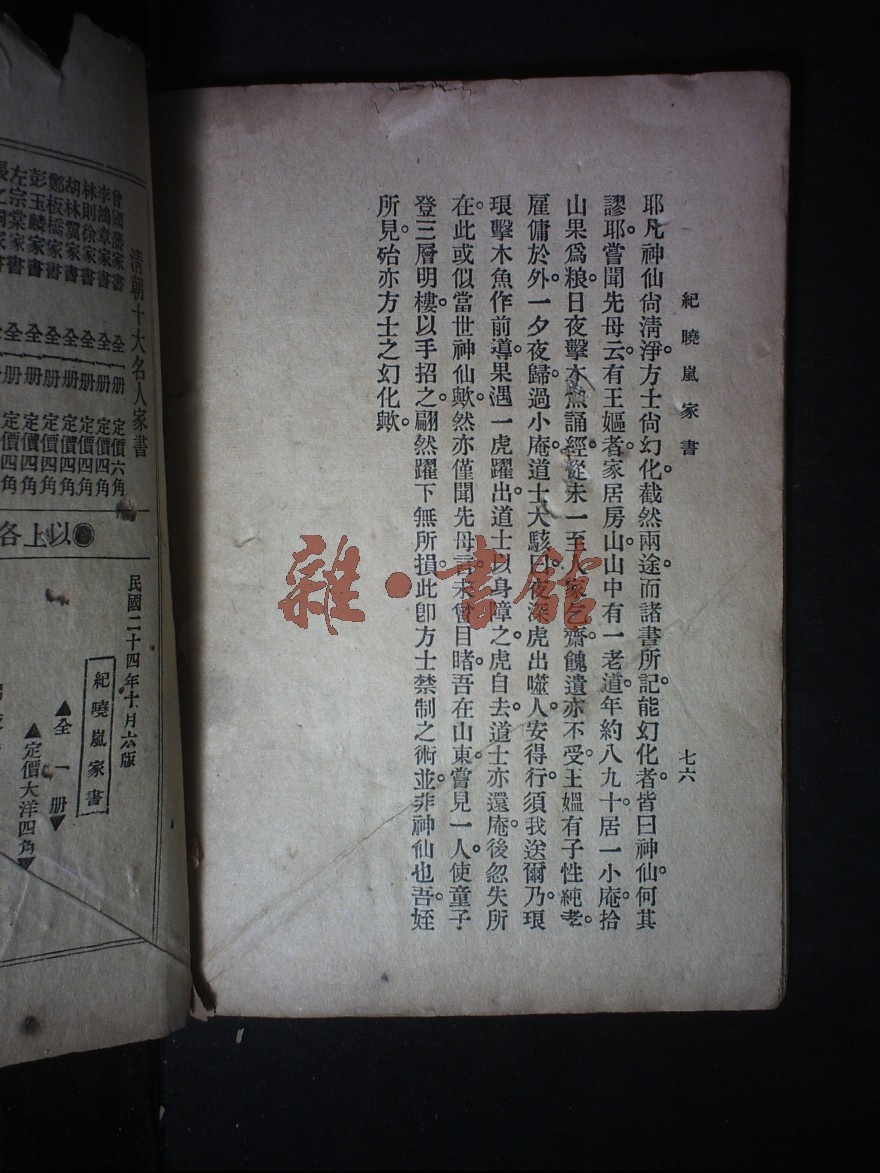 紀曉嵐家書
七六
耶。凡神仙尙清淨。方士尙幻化。截然兩途。而諸書所記能幻化者。皆曰神仙。何其
謬耶。嘗聞先母云。有王嫗者。家居房山。山中有一老道。年約八九十。居一小庵。拾
山果爲粮。日夜擊木魚誦經。從未一至人家乞齋。餽遺亦不受。王媼有子性純孝。
雇傭於外。一夕夜歸。過小庵。道士大駭曰。夜深虎出噬人。安得行。須我送爾。乃琅
琅擊木魚作前導。果遇一虎躍出。道士以身障之。虎自去。道士亦還庵。後忽失所
在。此或似當世神仙歟。然亦僅聞先母言。未曾目睹。吾在山東。嘗見一人。使童子
登三層明樓。以手招之。翩然躍下無所損。此卽方士禁制之術。並非神仙也。吾姪
所見。殆亦方士之幻化歟。
雜·書館
清朝十大名人家書
曾國藩家書 全一册 定價六角
李鴻章家書 全一册 定價四角
林則徐家書 全一册 定價四角
胡林翼家書 全一册 定價四角
鄭板橋家書 全一册 定價四角
彭玉麟家書 全一册 定價四角
左宗棠家書 全一册 定價四角
以上各
民國二十四年十月六版
紀曉嵐家書
▲全一册▼
▲定價大洋四角▼